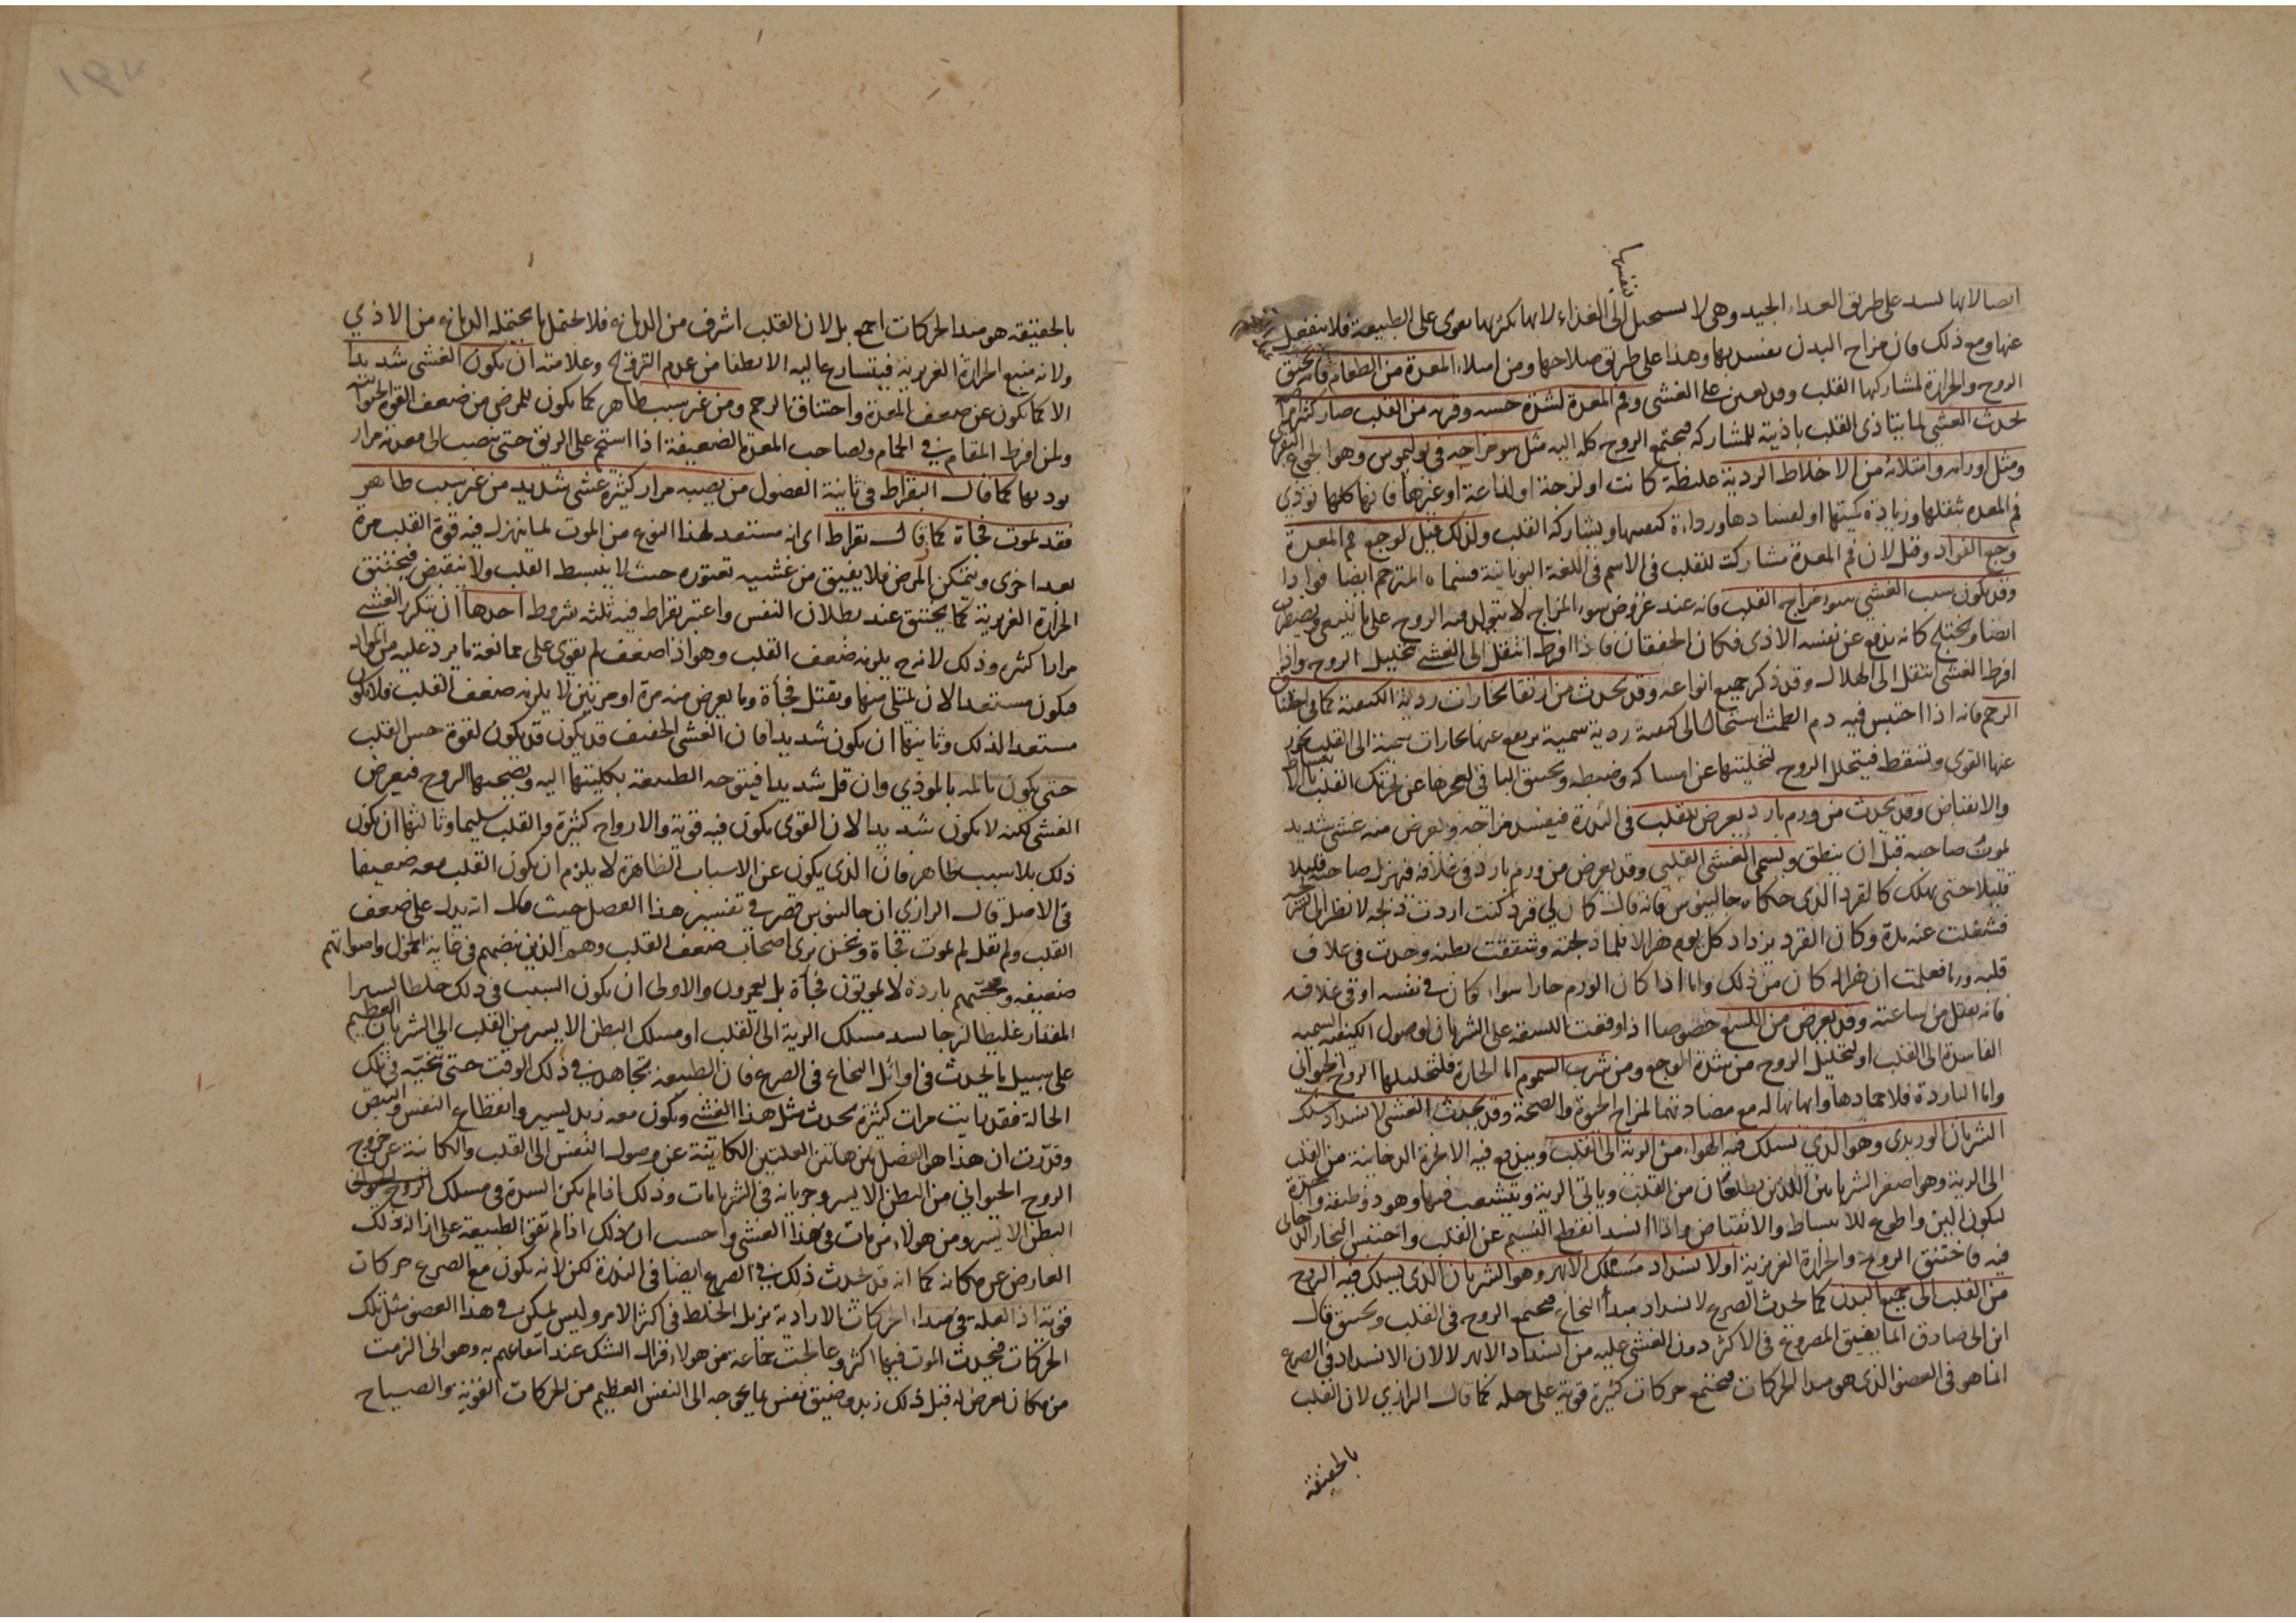 بنفسها
اتصالاتها لسد على طريق الغذاء الجيد وهى لا تستحيل الى الغذاء لانها بكثرتها تقوى على الطبيعة فلا تنفعل
عنها ومع ذلك فان مزاج البدن يفسد بها وهذا على طريق صلاحها ومن امتلاء المعدة من الطعام فانه يخنق
الروح والحرارة لمشاركتها القلب وقد يعين على الغشى وفم المعدة لشدة حسه وقربه من القلب صار كثيرا ما
يحدث الغشى لما يتأذى القلب باذيته للمشاركة فيجتمع الروح كله اليه مثل سوء مزاجه فى بوليموس وهو الجوع البقرى
ومثل اورامه وامتلائه من الاخلاط الردية غليظة كانت او لزجة او لذاعة او غيرها فانها كلها توذى
فم المعدة بثقلها وزيادة كميتها او لفسادها ورداءة كيفيتها ويشاركه القلب ولذلك قيل لوجع فم المعدة
وجع الفواد وقيل لان فم المعدة مشارك للقلب فى الاسم فى اللغة اليونانية فسماه المترجم ايضا فوادا
وقد يكون سبب الغشى سوء مزاج القلب فانه عند عروض سوء المزاج لا يتولد فيه الروح على ما ينبغى ويضطرب
ايضا ويختلج كانه يدفع عن نفسه الاذى فكان الخفقان فاذا افرط انتقل الى الغشى لتحليل الروح واذا
افرط الغشى انتقل الى الهلاك وقد ذكر جميع انواعه وقد يحدث من ارتقا بخارات ردية الكيفية كما فى اختناق
الرحم فانه اذا احتبس فيه دم الطمث استحال الى كيفية ردية سمية يرتفع عنها بخارات سمية الى القلب
عنها القوى وتسقط فيتحلل الروح لتخليتها عن امساكه وضبطه ويختنق الباقى لعجزها عن تحريك القلب بالانبساط
والانقباض وقد يحدث من ورم بارد يعرض للقلب فى الندرة فيفسد مزاجه ويعرض منه غشى شديد
يموت صاحبه قبل ان ينطق ويسمى الغشى القلبى وقد يعرض من ورم بارد فى غلافه فيهزل صاحبه قليلا
قليلا حتى يهلك كالقرد الذى حكاه جالينوس فانه قال كان لى قرد كنت اردت ذبحه لانظر الى تشريحه
فشغلت عنه مدة وكان القرد يزداد كل يوم هزالا فلما ذبحته وشققت بطنه وجدت فى غلاف
قلبه ورما فعلمت ان هزاله كان من ذلك واما اذا كان الورم حارا سواء كان فى نفسه او فى غلافه
فانه يقتل من ساعته وقد يعرض من اللسع خصوصا اذا وقعت اللسعة على الشريان لوصول الكيفية السمية
الفاسدة الى القلب او لتحليل الروح من شدة الوجع ومن شرب السموم اما الحارة فلتحليلها الروح الحيوانى
واما الباردة فلاخمادها واماتتها له مع مضادتها لمزاج الحيوة والصحة وقد يحدث الغشى لانسداد مسلك
الشريان الوريدى وهو الذى يسلك فيه الهواء من الرية الى القلب ويندفع فيه الابخرة الدخانية من القلب
الى الرية وهو اصغر الشريانين اللذين يطلعان من القلب وياتى الرية ويتشعب فيها وهو ذو طبقة واحدة
ليكون الين واطوع للانبساط والانقباض واذا انسد انقطع النسيم عن القلب واحتبس البخار الدخانى
فيه فاختنق الروح والحرارة الغريزية او لانسداد مسلك الابهر وهو الشريان الذى يسلك فيه الروح
من القلب الى جميع البدن كما يحدث الصرع لانسداد مبدأ النخاع فيجتمع الروح فى القلب ويختنق قال
ابن ابى صادق انما يفيق المصروع فى الاكثر دون الغشى عليه من انسداد الابهر لا لان الانسداد فى الصرع
انما هو فى العضو الذى هو مبدا الحركات فيجتمع حركات كثيرة قوية على حله كما قال الرازي لان القلب
بالحقيقة
بالحقيقة هو مبدا الحركات اجمع بل لان القلب اشرف من الدماغ فلا يحتمل ما يحتمله الدماغ من الاذي
ولانه منبع الحرارة الغريزية فيتسارع اليه الانطفا من عدم التروح وعلامته ان يكون الغشى شديدا
لا كما يكون عن ضعف المعدة واختناق الرحم ومن غير سبب ظاهر كما يكون للمرض من ضعف القوة الحيوانية
ولمن افرط المقام فى الحمام ولصاحب المعدة الضعيفة اذا استحم على الريق حتى ينصب الى معدته مرار
يوذيها كما قال البقراط فى ثانية الفصول من يصيبه مرار كثيرة غشى شديد من غير سبب ظاهر
فقد يموت فجاة كما قال بقراط اى انه مستعد لهذا النوع من الموت لما ينهزل فيه قوة القلب مرة
بعد اخرى ويتمكن المرض فلا يفيق من غشية تعتوره حيث لا ينبسط القلب ولا ينقبض فيختنق
الحرارة الغريزية كما يختنق عند بطلان النفس واعتبر بقراط فيه ثلثة شروط احدها ان يتكرر الغشى
مرارا كثيرة وذلك لانه ح يلزمه ضعف القلب وهو اذا ضعف لم يقوى على ممانعة ما يرد عليه من المواد
فيكون مستعدا لان يمتلى منها ويقتل فجأة وما يعرض منه مرة او مرتين لا يلزمه ضعف القلب فلا يكون
مستعدا لذلك وثانيتها ان يكون شديدا فان الغشى الخفيف قد يكون لقوة حس القلب
حتى يكون تالمه بالموذي وان قل شديدا فيتوجه الطبيعة بكليتها اليه ويصحبها الروح فيعرض
الغشى لكنه لا يكون شديدا لان القوى يكون فيه قوية والارواح كثيرة والقلب سليما وثالثها ان يكون
ذلك بلا سبب ظاهر فان الذى يكون عن الاسباب الظاهرة لا يلزم ان يكون القلب معه ضعيفا
فى الاصل قال الرازي ان جالينوس قصر فى تفسير هذا الفصل حيث قال انه يدل على ضعف
القلب ولم يقل لم يموت فجاة ونحن نرى اصحاب ضعف القلب وهم الذين نبضهم فى غاية الخمول واصواتهم
ضعيفة ومجستهم باردة لا يموتون فجأة بل يعمرون والاولى ان يكون السبب فى ذلك خلطا يسيرا
المقدار غليظا لزجا لسد مسلك الرية الى القلب او مسلك البطن الايسر من القلب الى الشريان العظيم
على سبيل ما يحدث فى اوائل النخاع فى الصرع فان الطبيعة تجاهد فى ذلك الوقت حتى تنحيه فى تلك
الحالة فقد رايت مرات كثيرة يحدث مثل هذا الغشى ويكون معه زبد يسير وانقطاع النفس والنبض
وقدرت ان هذا هو الفصل بين هاتين العلتين الكائنة عن وصول النفس الى القلب والكائنة عن خروج
الروح الحيوانى من البطن الايسر وجريانه فى الشريانات وذلك اذا لم يكن السدة فى مسلك الروح الحيوانى
البطن الايسر ومن هولاء من مات فى هذا الغشى واحسب ان ذلك اذا لم تقو الطبيعة على ازالة ذلك
العارض عن مكانه كما انه قد يحدث ذلك فى الصرع ايضا فى الندرة لكن لانه يكون مع الصرع حركات
قوية اذ العلة فى مبداء الحركات الارادية يزيل الخلط فى اكثر الامر وليس يمكن فى هذا العضو مثل تلك
الحركات فيحدث الموت فيها اكثر وعالجت جماعة من هولاء فزال الشك عند انتفاعهم به وهو انى الزمت
من كان يعرض له قبل ذلك زبد وضيق نفس ما يحوجه الى النفس العظيم من الحركات القوية والصياح